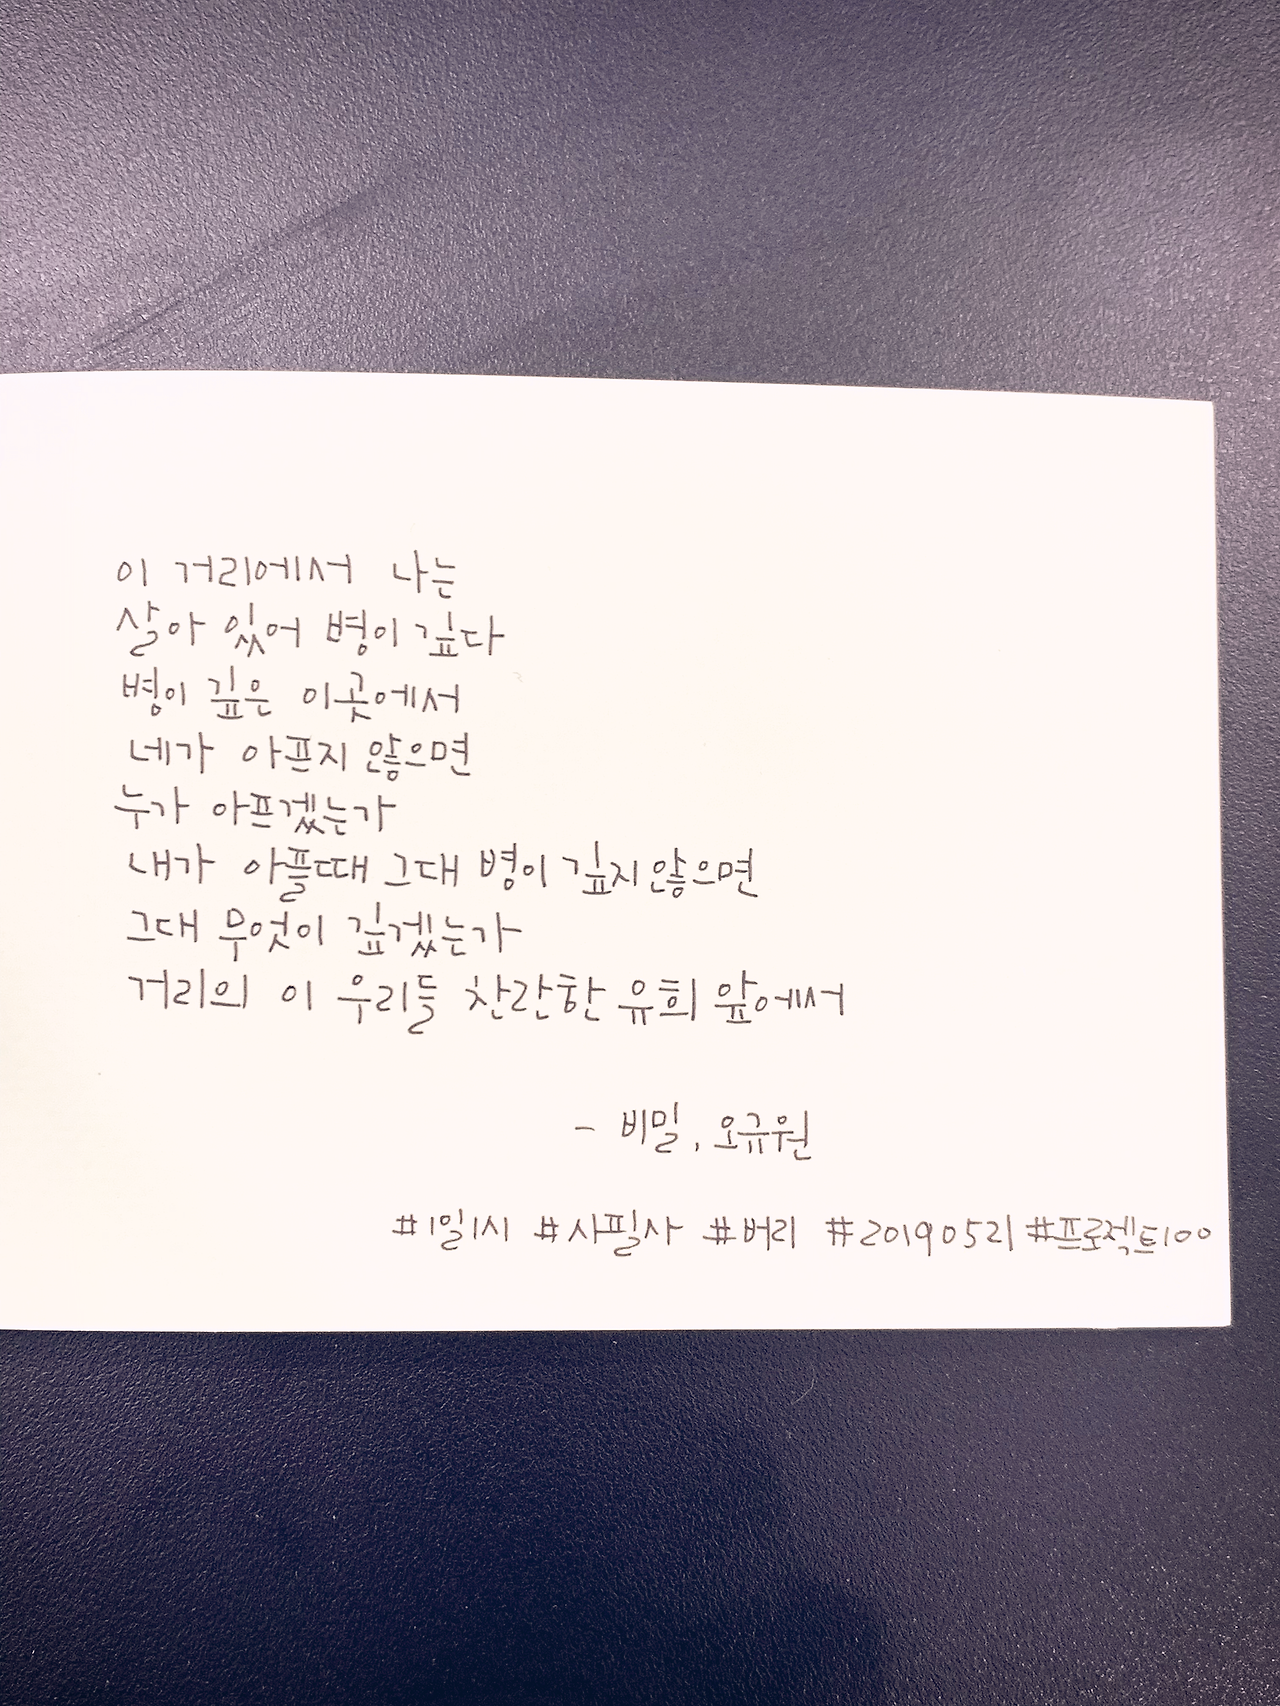 이 거리에서 나는
살아 있어 병이 깊다
병이 깊은 이곳에서
네가 아프지 않으면
누가 아프겠는가
내가 아플때 그대 병이 깊지 않으면
그대 무엇이 깊겠는가
거리의 이 우리들 찬란한 유희 앞에서
- 비밀, 오규원
#1일1시 #시필사 #버리 #20190521 #프로젝트100